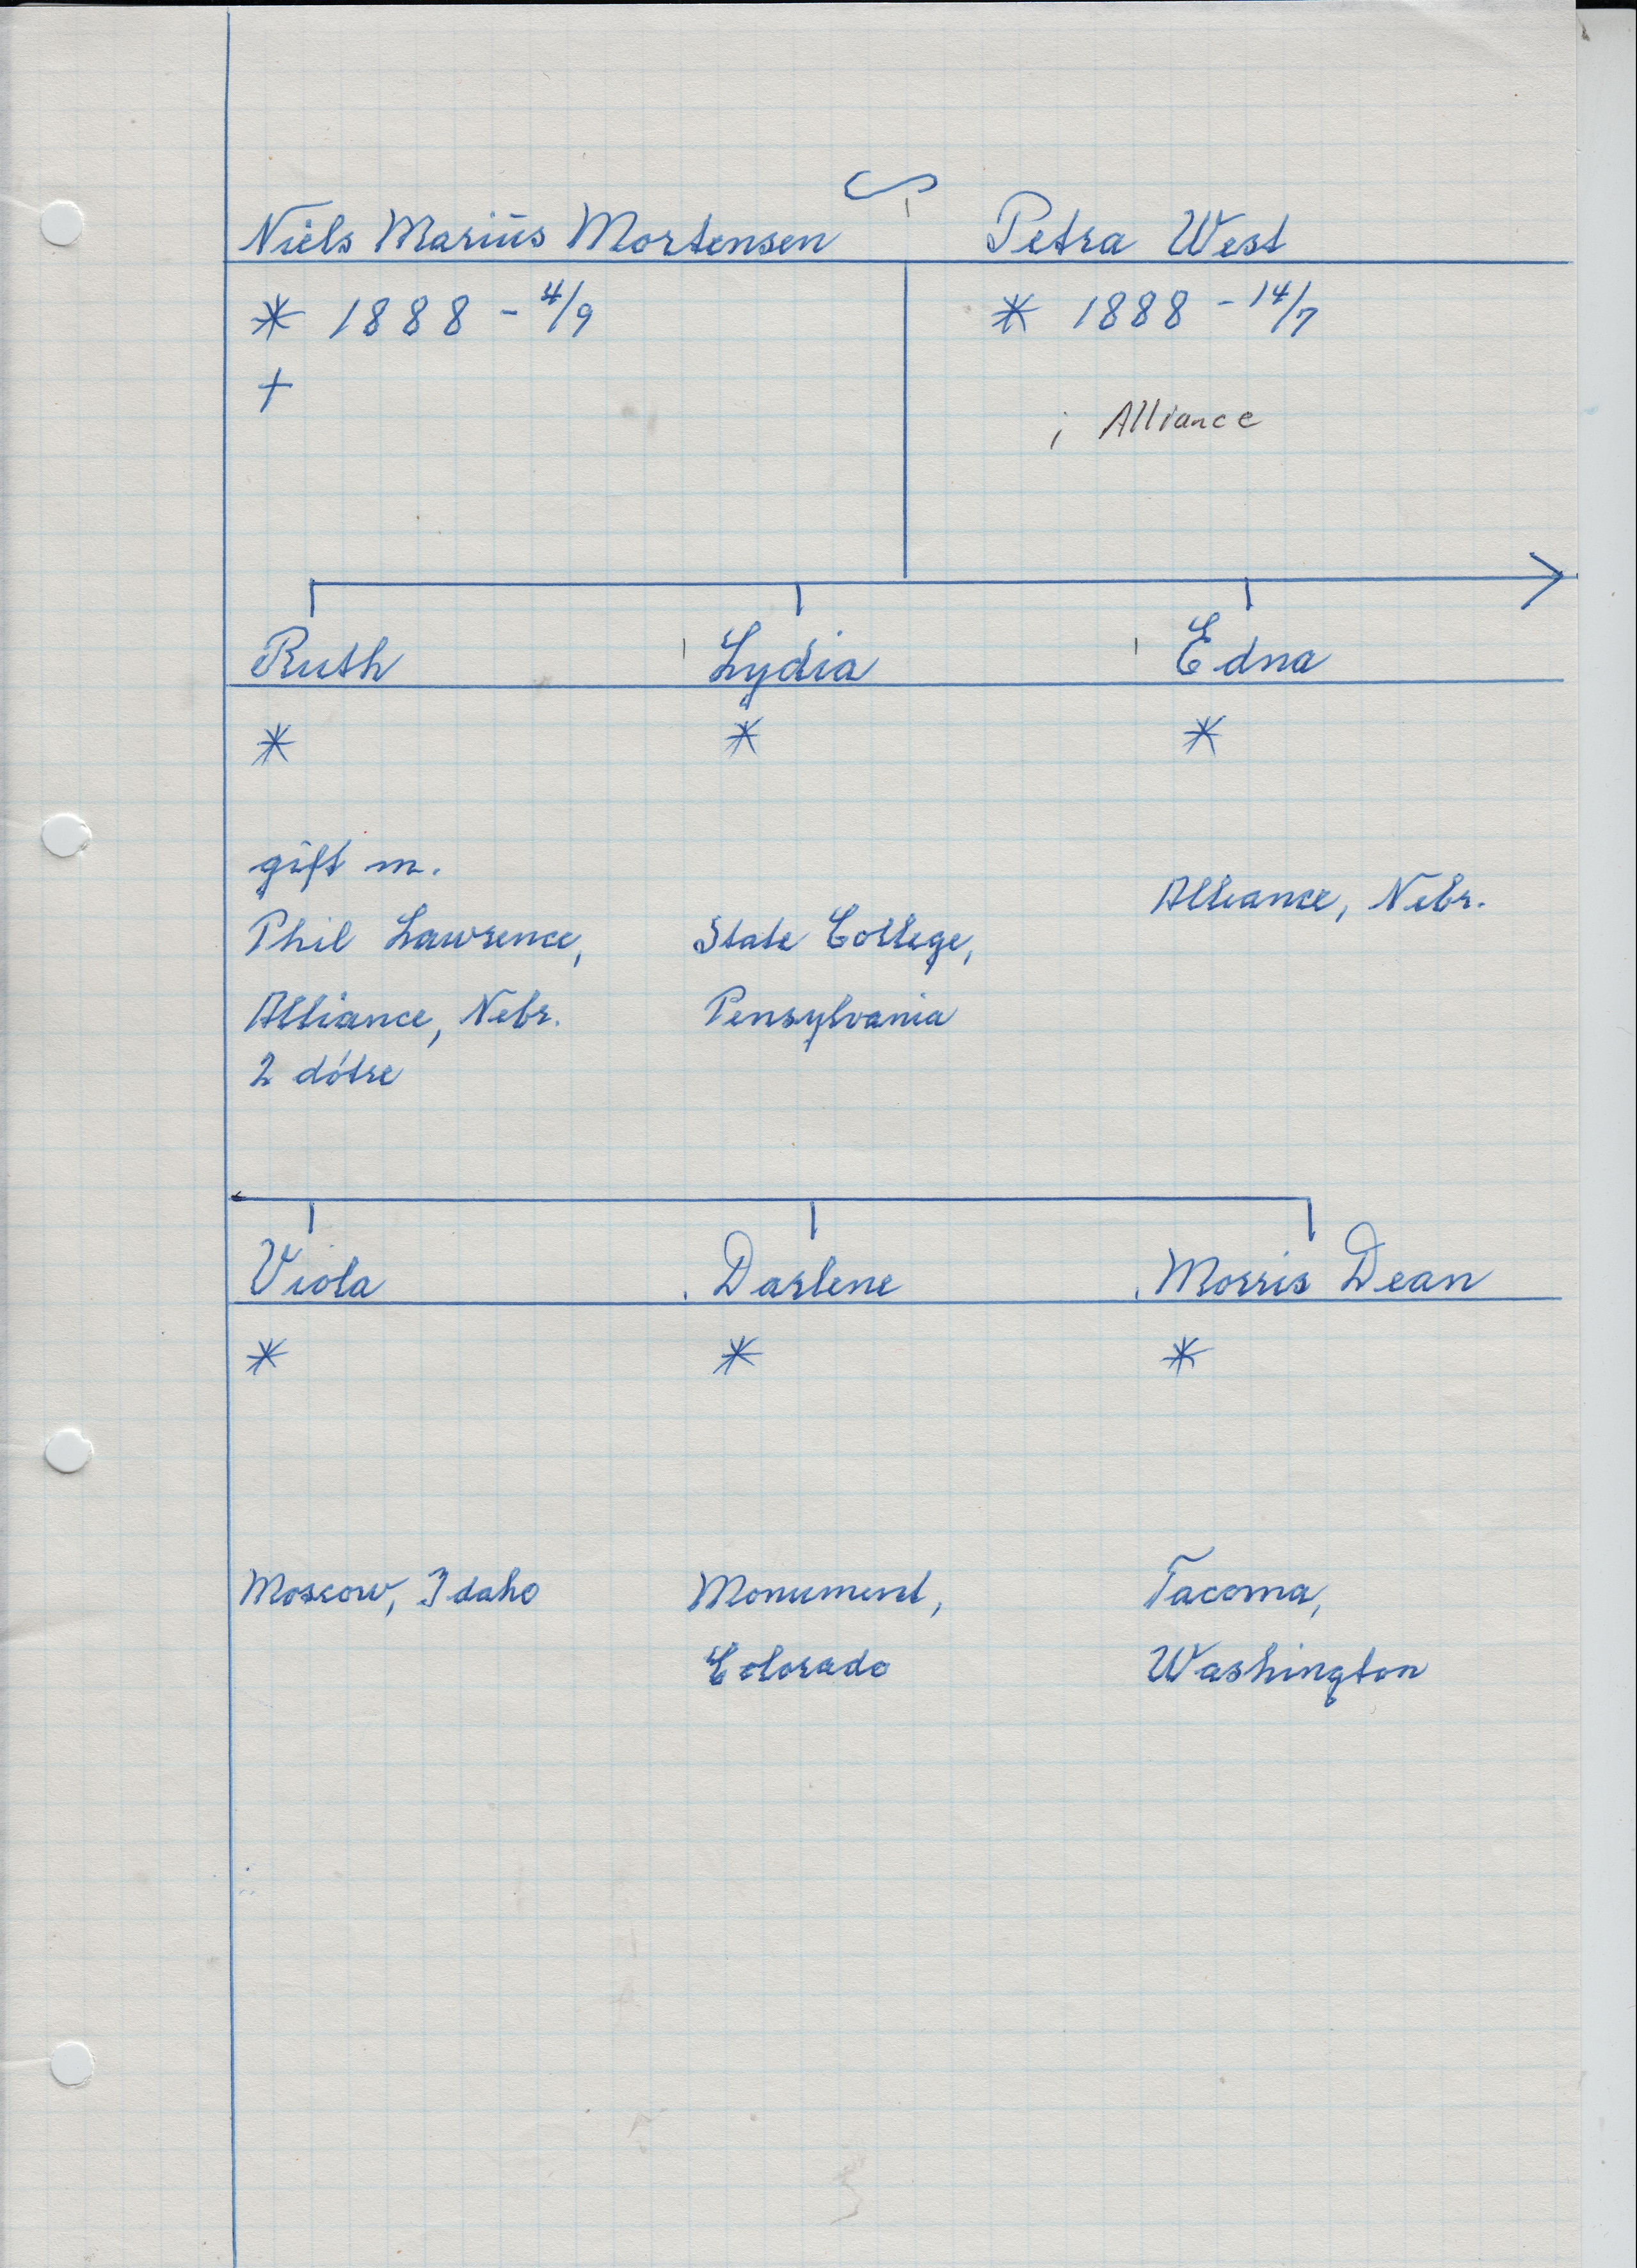 Niels Marius Mortensen Petra West
* 1888 - 4/9 * 1888 - 14/7
+
i Alliance
Ruth Lydia Edna
* * *
gift m.
Alliance, Nebr.
Phil Lawrence, State College,
Alliance, Nebr. Pensylvania
2 dótre
Viola Darlene Morris Dean
* * *
Moscow, Idaho Monument, Tacoma,
Colorado Washington